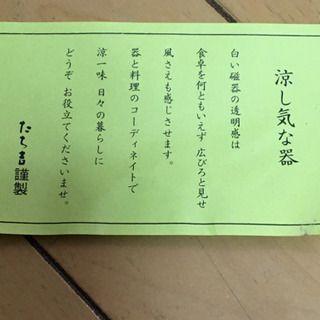 涼し気な器
白い磁器の透明感は
食卓を何ともいえず 広びろと見せ
風さえも感じさせます。
器と料理のコーディネイトで
涼一味 日々の暮らしに
どうぞ お役立てくださいませ。
たち吉 謹製